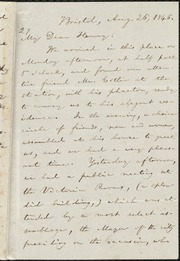 Bristol, Aug. 26, 1846.
2)
My Dear Henry:
We arrived in this place on
Monday afternoon, at half past
5 o'clock, and found our attentive
friend Mr. Estlin at the
station, with his phaeton, ready
to convey us to his elegant residence.
In the evening, a choice
circle of friends, men and women,
assembled at his house to greet
us, and we had a very pleasant
time. Yesterday afternoon,
we had a public meeting at
the Victoria Rooms, (a splendid
building,) which was attended
by a most select assemblage,
the Mayor of the city
presiding on the occasion, who